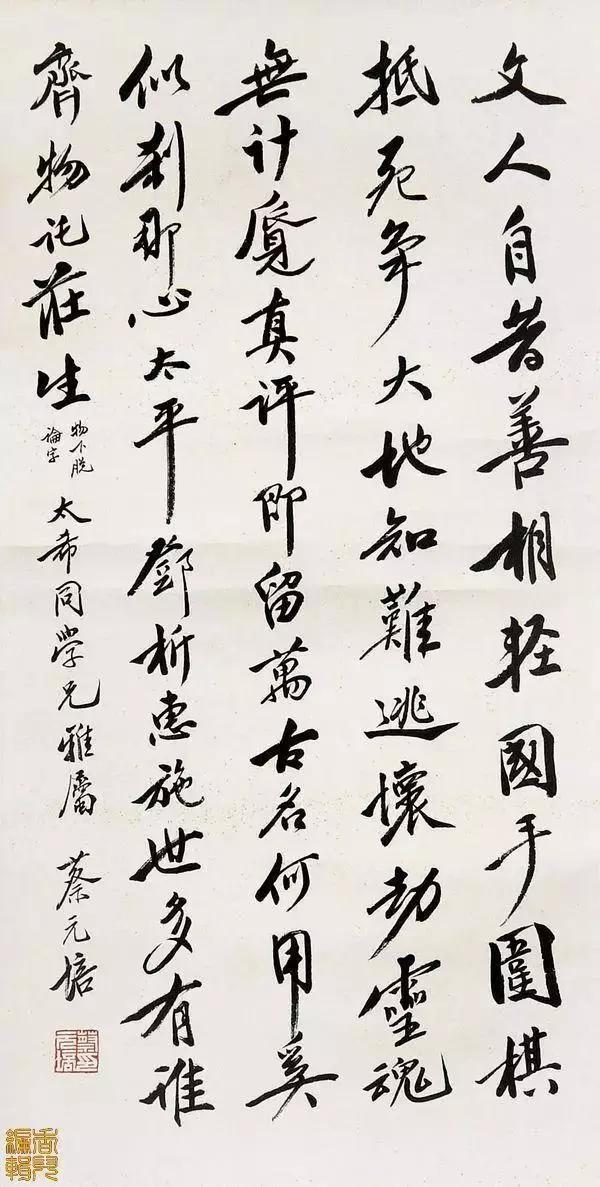 文人自昔善相輕國手圍棋
抵死爭大地知難逃壞劫靈魂
無計覓真評即留萬古名何用奚
似刹那心太平鄧析惠施世多有誰
齊物託莊生
物下脫
論字
太希同學兄雅屬 蔡元培